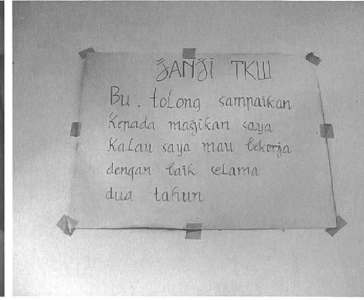 JANJI TKW
Bu. tolong sampaikan
Kepada magikan saya
Kalau saya mau bekerja
dengan baik selama
dua tahun